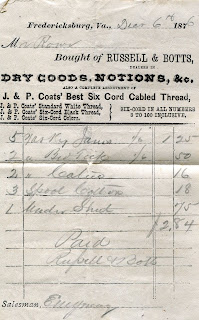 Fredericksburg, Va., Dec 6th 1876
Mr Rowe
Bought of RUSSELL & BOTTS,
DEALERS IN
DRY GOODS, NOTIONS, &c.
ALSO A COMPLETE ASSORTMENT OF
J. & P. Coats' Best Six Cord Cabled Thread,
J. & P. Coats' Standard White Thread,
J. & P. Coats' Six-Cord Black Thread,
J. & P. Coats' Six-Cord Colors.
SIX-CORD IN ALL NUMBERS
8 TO 100 INCLUSIVE.
5 Yds Ky Jeans 1 25
2 " 50
2 " Calico 16
3 Spool Cotton 18
1 Under Shirt 75
$2.84
Paid
Russell & Botts
Salesman,